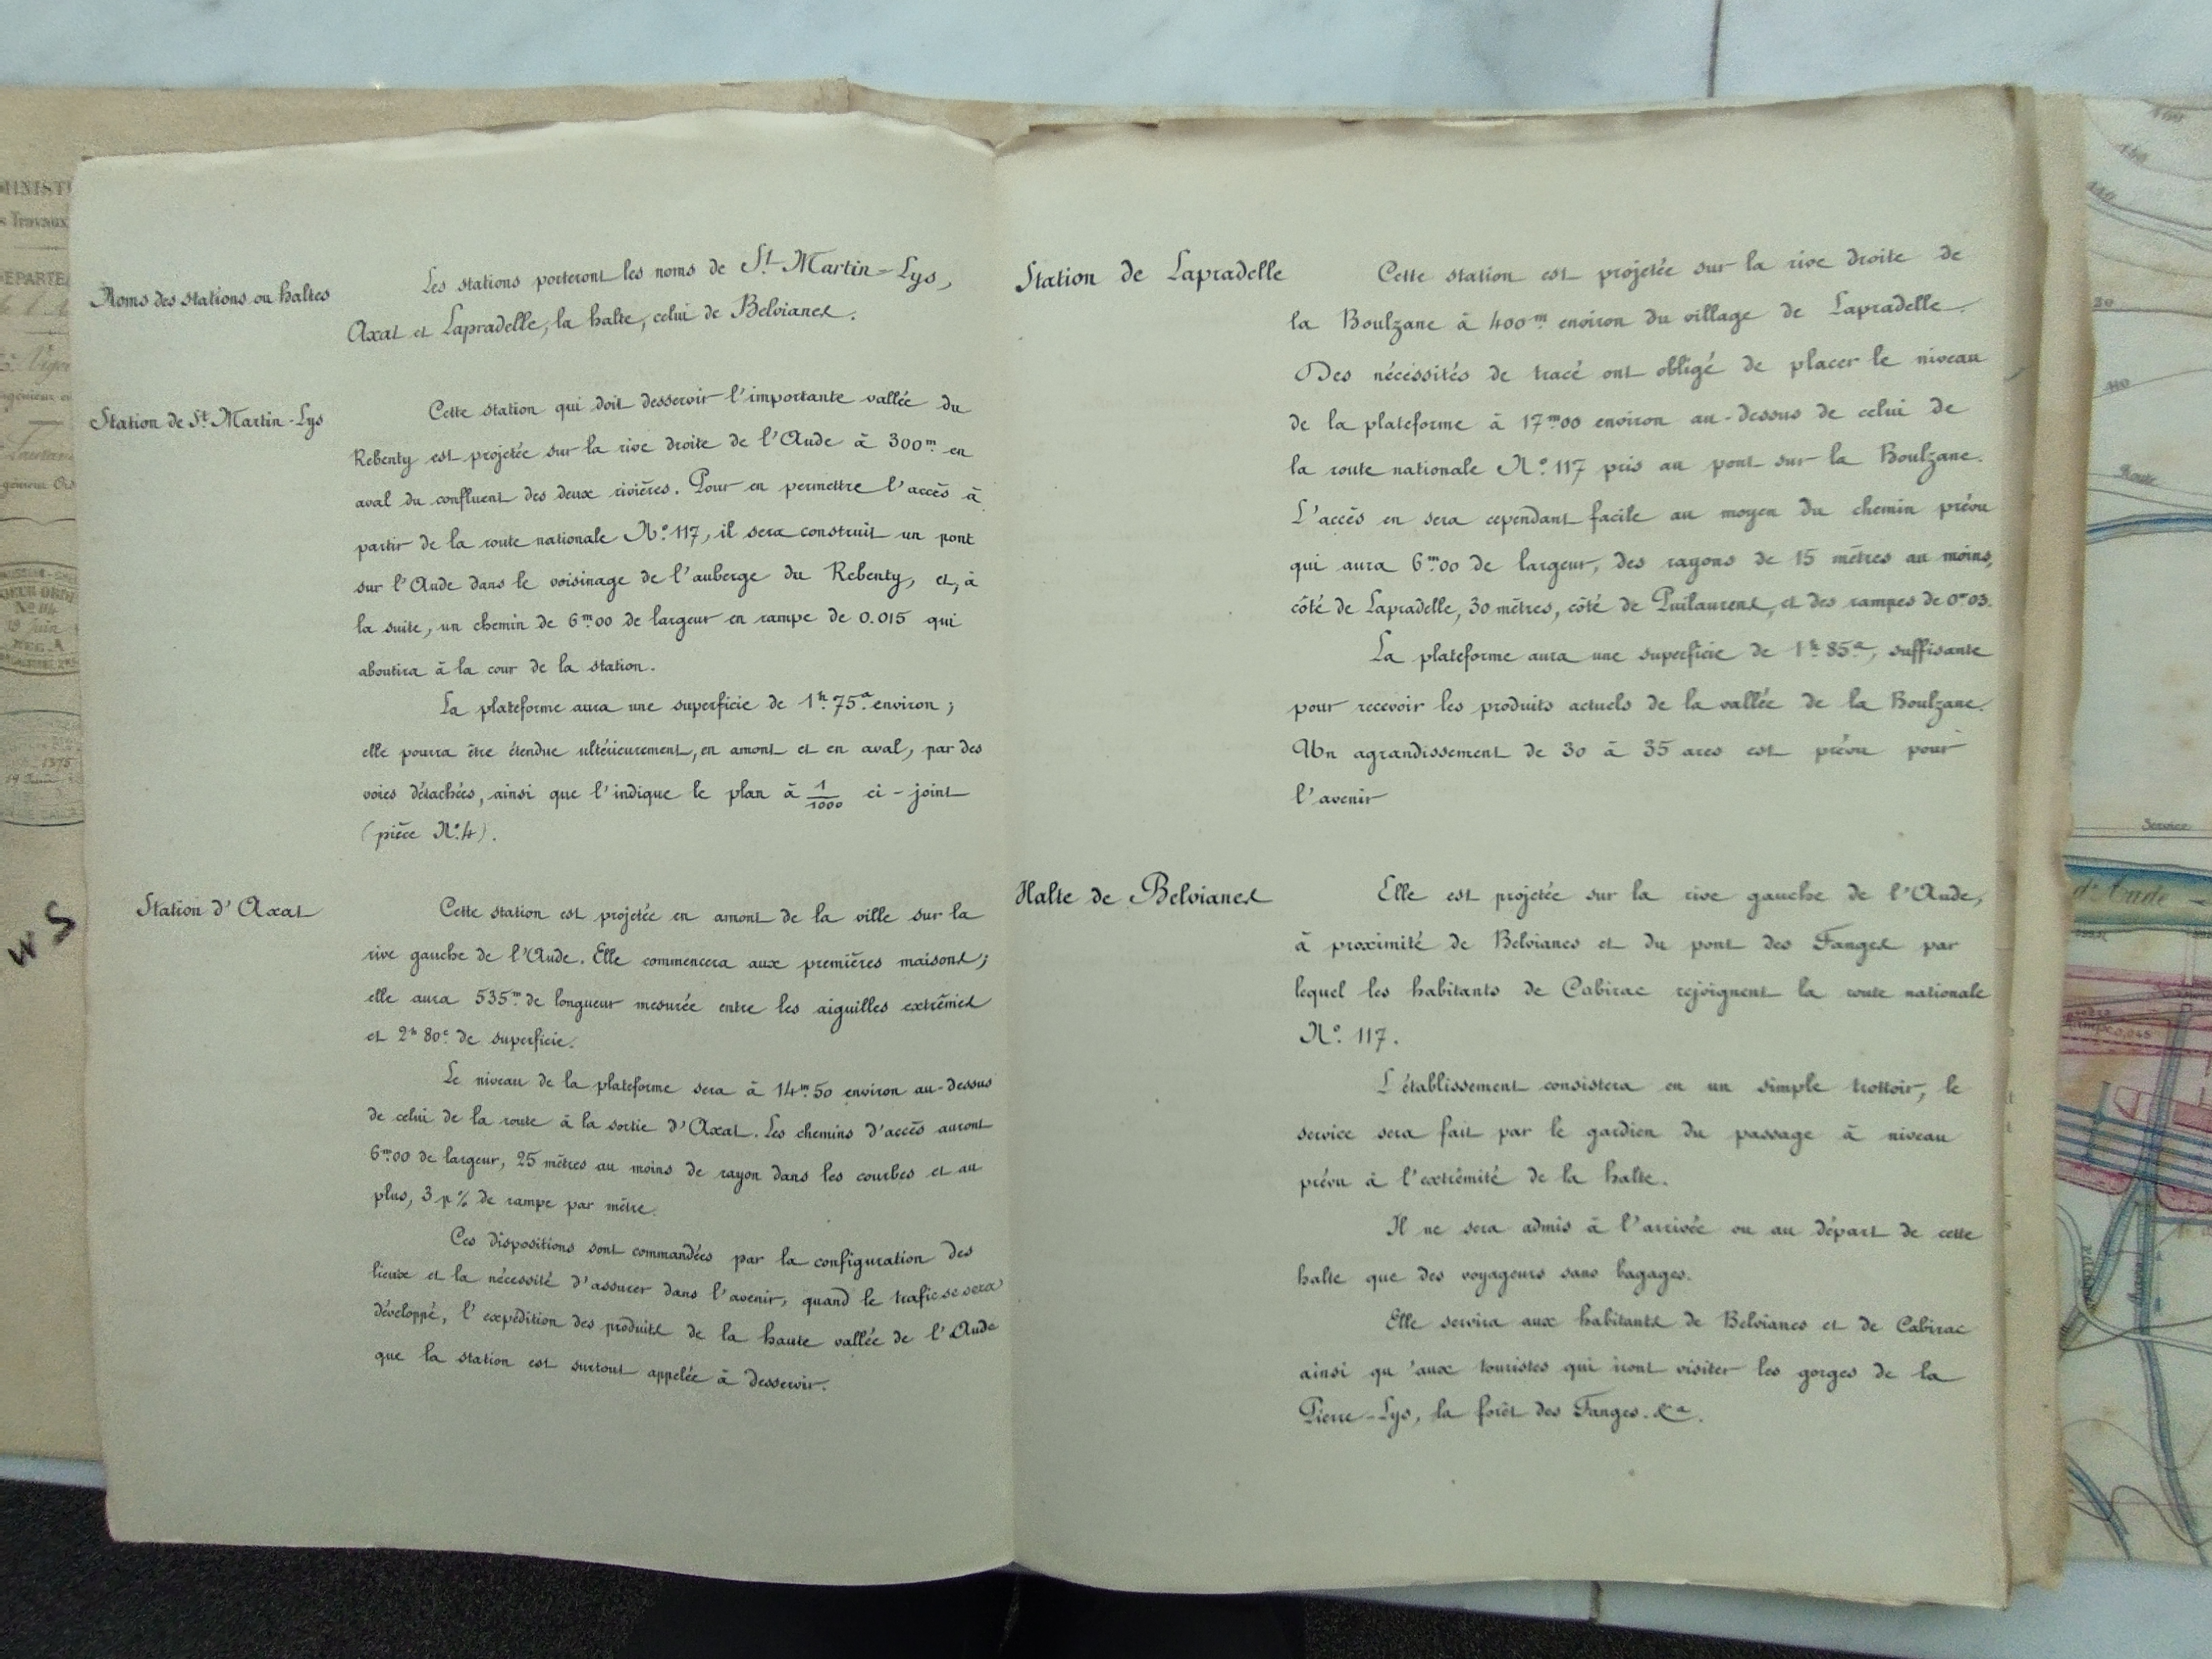 Noms des stations ou haltes
Les stations porteront les noms de St Martin-Lys,
Axat et Lapradelle, la halte, celui de Belvianes.
Station de St Martin-Lys
Cette station qui doit desservir l'importante vallée du
Rebenty est projetée sur la rive droite de l'Aude à 300m en
aval du confluent des deux rivières. Pour en permettre l'accès à
partir de la route nationale No 117, il sera construit un pont
sur l'Aude dans le voisinage de l'auberge du Rebenty, et, à
la suite, un chemin de 6m00 de largeur en rampe de 0.015 qui
aboutira à la cour de la station.
La plateforme aura une superficie de 1h 75a environ ;
elle pourra être étendue ultérieurement, en amont et en aval, par des
voies détachées, ainsi que l'indique le plan à 1/1000 ci-joint
(pièce No 4).
Station d'Axat
Cette station est projetée en amont de la ville sur la
rive gauche de l'Aude. Elle commencera aux premières maisons ;
elle aura 535m de longueur mesurée entre les aiguilles extrêmes
et 2h 80c de superficie.
Le niveau de la plateforme sera à 14m50 environ au-dessus
de celui de la route à la sortie d'Axat. Les chemins d'accès auront
6m00 de largeur, 25 mètres au moins de rayon dans les courbes et au
plus, 3 p% de rampe par mètre.
Ces dispositions sont commandées par la configuration des
lieux et la nécessité d'assurer dans l'avenir, quand le trafic se sera
développé, l'expédition des produits de la haute vallée de l'Aude
que la station est surtout appelée à desservir.
Station de Lapradelle
Cette station est projetée sur la rive droite de
la Boulzane à 400m environ du village de Lapradelle.
Des nécessités de tracé ont obligé de placer le niveau
de la plateforme à 17m00 environ au-dessus de celui de
la route nationale No 117 pris au pont sur la Boulzane.
L'accès en sera cependant facile au moyen du chemin prévu
qui aura 6m00 de largeur, des rayons de 15 mètres au moins,
côté de Lapradelle, 30 mètres, côté de Puilaurens, et des rampes de 0m03.
La plateforme aura une superficie de 1h 85a, suffisante
pour recevoir les produits actuels de la vallée de la Boulzane.
Un agrandissement de 30 à 35 ares est prévu pour
l'avenir
Halte de Belvianes
Elle est projetée sur la rive gauche de l'Aude,
à proximité de Belvianes et du pont des Fanges par
lequel les habitants de Cabirac rejoignent la route nationale
No 117.
L'établissement consistera en un simple trottoir, le
service sera fait par le gardien du passage à niveau
prévu à l'extrémité de la halte.
Il ne sera admis à l'arrivée ou au départ de cette
halte que des voyageurs sans bagages.
Elle servira aux habitants de Belvianes et de Cabirac
ainsi qu'aux touristes qui iront visiter les gorges de la
Pierre-Lys, la forêt des Fanges. &a.
MINIST
s Travaux
Route
Service
d'Aude